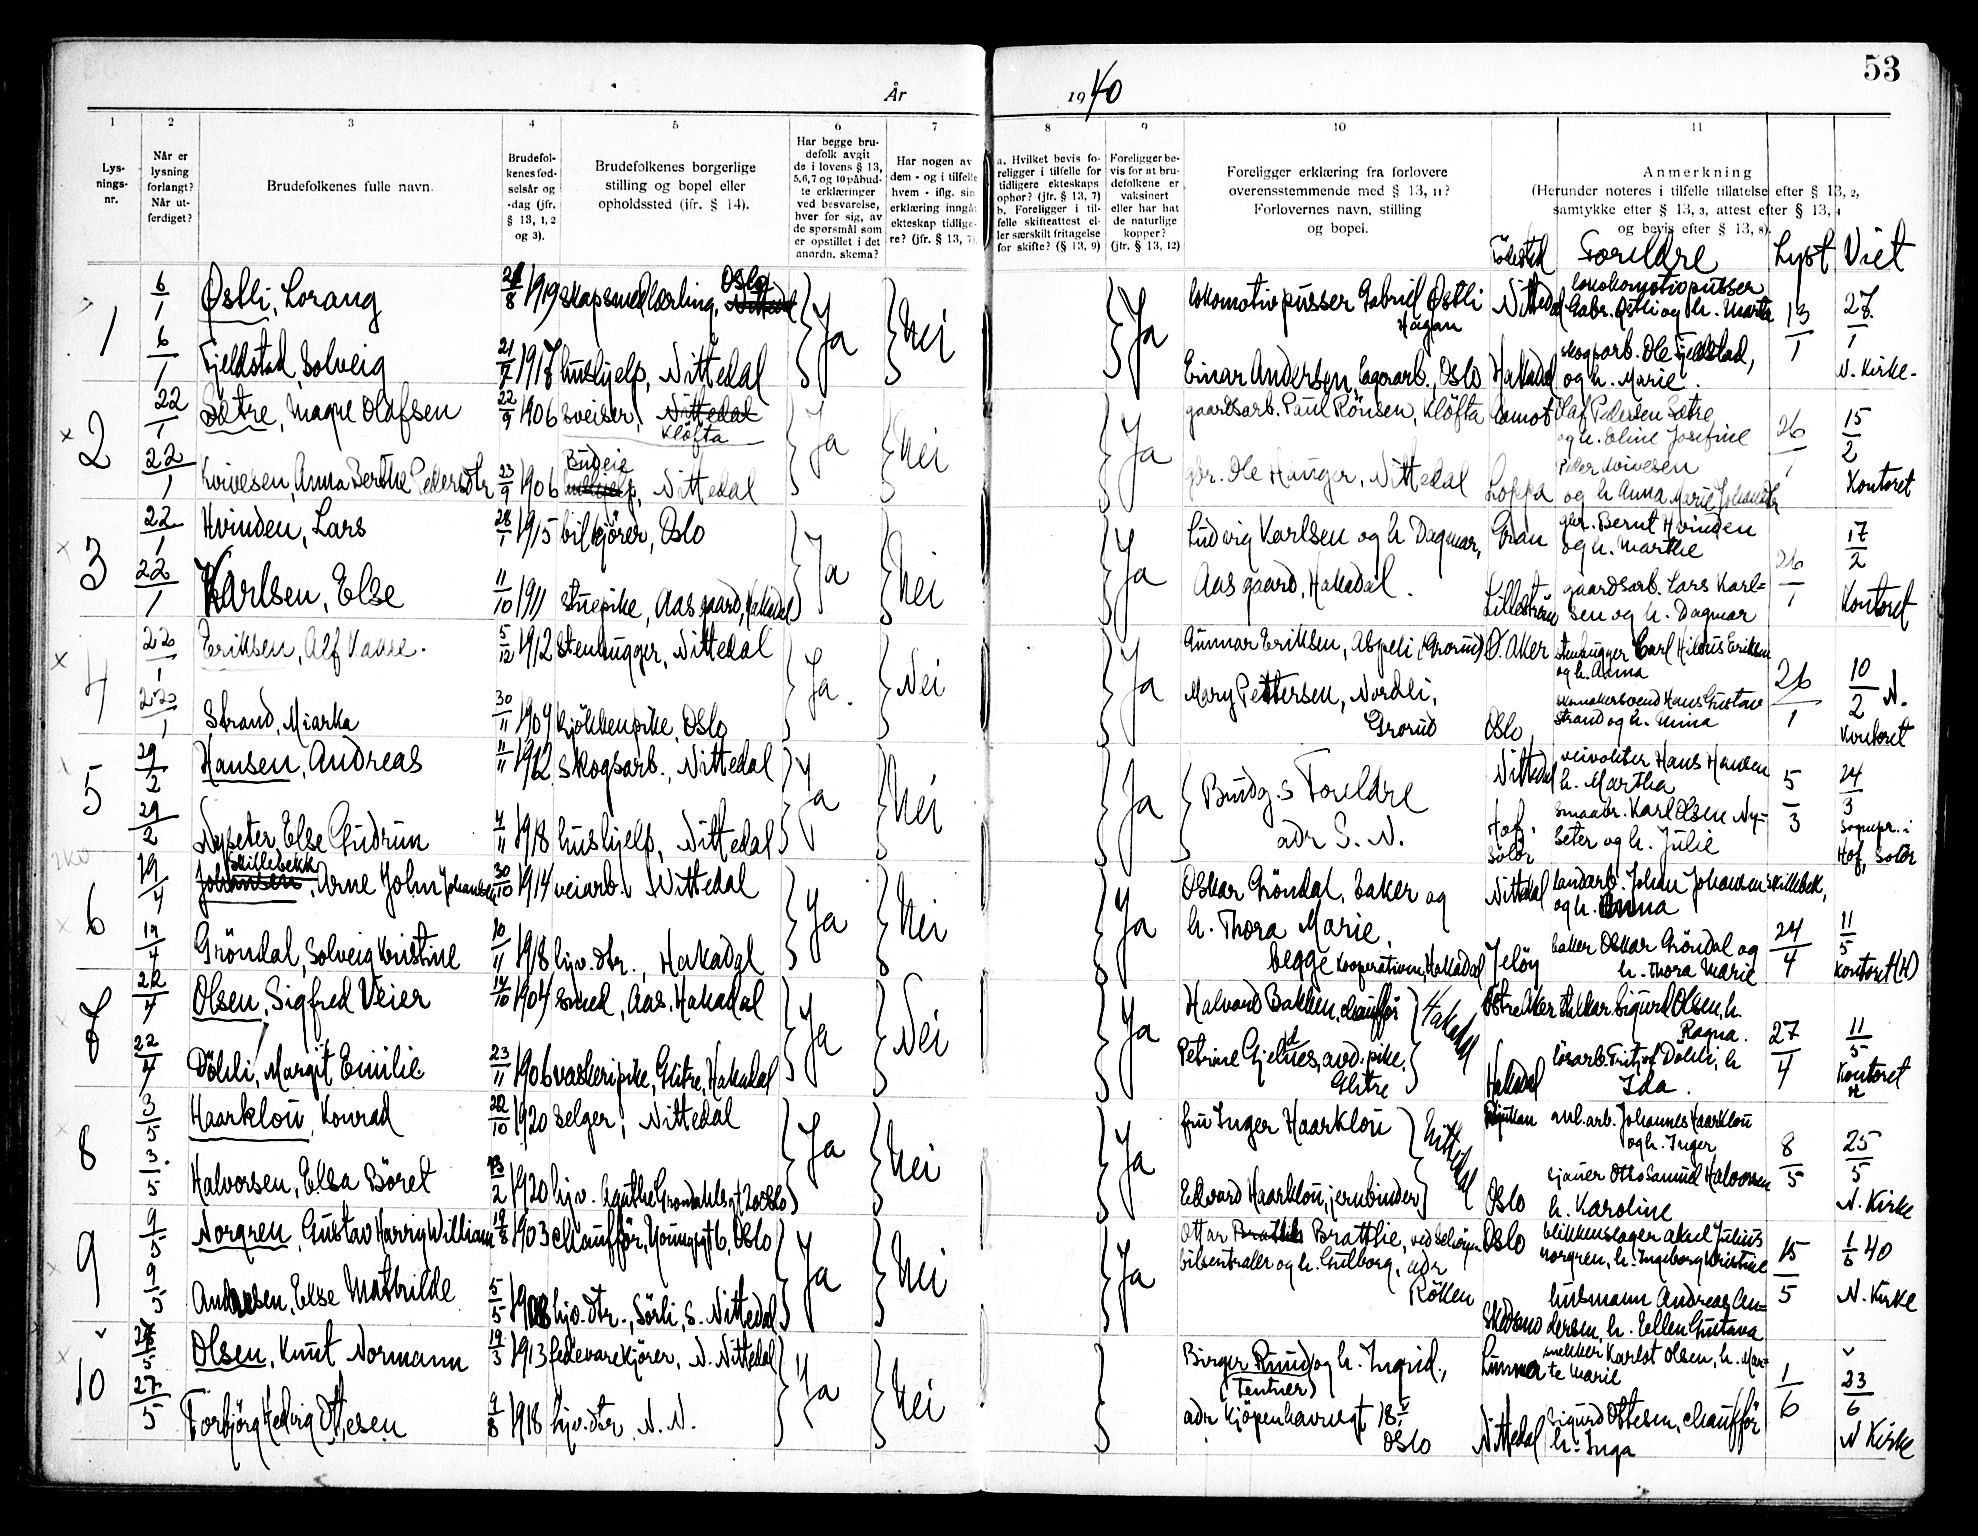 53
År
1940
1
2
3
4
5
6
7
8
9
10
11
Lys-
nings-
nr.
Når er
lysning
forlangt?
Når ut-
ferdiget?
Brudefolkenes fulle navn.
Brudefol-
kenes fød-
selsår og
-dag (jfr.
§ 13, 1, 2
og 3).
Brudefolkenes borgerlige
stilling og bopel eller
opholdssted (jfr. § 14).
Har begge bru-
defolk avgit
de i lovens § 13,
5, 6, 7 og 10 påbud-
te erklæringer
ved besvarelse,
hver for sig, av
de spørsmål som
er opstillet i det
anordn. skema?
Har nogen av
dem - og i tilfelle
hvem - iflg. sin
erklæring inngåt
ekteskap tidlige-
re? (jfr. § 13, 7).
a. Hvilket bevis fo-
religger i tilfelle for
tidligere ekteskaps
ophør? (jfr. § 13, 7)
b. Foreligger i til-
felle skifteattest el-
ler særskilt fritagelse
for skifte? (§ 13, 9)
Foreligger be-
vis for at bru-
defolkene er
vaksinert
eller har hat
de naturlige
kopper?
(jfr. § 13, 12)
Foreligger erklæring fra forlovere
overensstemmende med § 13, 11?
Forlovernes navn, stilling
og bopel.
Anmerkning
(Herunder noteres i tilfelle tillatelse efter § 13, 2,
samtykke efter § 13, 3, attest efter § 13, 4
og bevis efter § 13, 8).
Fødested Foreldre Lyst Viet
1
6/1 Østli, Lorang 21/8 1919 skapsmedlærling, Nittedal Oslo Ja Nei Ja
lokomotivpusser Gabriel Østli
Hagan
Nittedal
lokomotivpusser
Gabr. Østli og h. Marte
13/1
27/1
6/1 Fjeldstad, Solveig 21/7 1917 hushjelp, Nittedal
Einar Andersen, lagerarb., Oslo Hakadal
skogsarb. Ole Fjeldstad,
og h. Marie.
N. Kirke.
2
22/1 Sætre, Magne Olafsen 22/9 1906 sveiser, Nittedal
Kløfta
Ja Nei Ja
gaardsarb. Paul Rönsen, Kløfta
Olaf Pedersen Sætre
og h. Eline Josefine
26/1
15/2
22/1 Kvivesen, Anna Berthe Pedersdtr 23/9 1906 Budeie
Nittedal
gbr. Ole Hauger, Nittedal Loppa
Peder Kvivesen
og h Anna Marie Johansdtr
Kontoret
3
22/1 Hvinden, Lars 28/1 1915 bilkjører, Oslo Ja Nei Ja
Ludvig Karlsen og h Dagmar,
Gran
gbr. Bernt Hvinden
og h. Marthe
26/1
17/2
22/1 Karlsen, Else 11/10 1911 stuepike, Aasgaard, Hakadal
Aasgaard, Hakadal.
Lillestrøm
gaardsarb. Lars Karl=
sen og h. Dagmar
Kontoret
4
22/1 Eriksen, Alf 5/12 1912 stenhugger, Nittedal Ja. Nei Ja
Gunnar Eriksen, (Grorud) Ø. Aker
stenhugger Carl Hilmus Eriksen
og h. Anna
26/1
10/2 N.
22/1 Strand, Miarka 30/11 1909 kjøkkenpike, Oslo
Mary Pettersen, Nordli,
Grorud Oslo
skomakersvend Hans Gustav
Strand og h. Anna
Kontoret
5
29/2 Hansen, Andreas 11/11 1912 skogsarb., Nittedal Ja Nei Ja
Brudg.s Foreldre
adr S. N.
Nittedal
veivokter Hans Hansen
h. Martha
5/3
24/3
29/2 Nyseter, Else Gudrun 4/11 1918 hushjelp, Nittedal
Hof.
Solør
smaabr. Karl Olsen Ny=
seter og h. Julie
Sognepr. i
Hof, Solør
6
19/4 Johansen Skillebekk, Arne John Johansen 30/10 1914 veiarb. Nittedal Ja Nei Ja
Oskar Gröndal, baker og
h. Thora Marie,
begge Kooperativen, Hakadal
Nittedal
landarb. Johan Johansen Skillebek,
og h. Anna
24/4
11/5
19/4 Gröndal, Solveig Kristine 10/11 1918 hjv. dtr., Hakadal
Jeløy
baker Oskar Gröndal og
h. Thora Marie
Kontoret (H)
7
22/4 Olsen, Sigfred Veier 14/10 1904 smed, Aas, Hakadal Ja Nei Ja
Halvard Bakken, chauffør
Hakadal
Østre Aker Sigurd Olsen, h.
Ragna.
27/4
11/5
22/4 Döhli, Margit Emilie 23/11 1906 vaskeripike, Glitre, Hakadal
Petrine Gjelnes, avd. pike,
Glitre
Hakadal
løsarb. Fritjof Döhli, h
Ida.
Kontoret
H
8
3/5 Haarklou, Konrad 22/10 1920 selger, Nittedal Ja Nei Ja
fru Inger Haarklou
Nittedal
Rjukan
anl. arb. Johannes Haarklou
og h. Inger
8/5
25/5
3/5 Halvorsen, Elsa Böret 13/2 1920 hjv. Agathe Grøndahlsgt 20 Oslo
Edvard Haarklou, jernbinder
Oslo
sjauer Otto Samuel Halvorsen
h. Karoline
N. Kirke
9
9/5 Norgren, Gustav Harry William 19/8 1903 chauffør, Youngsgt 6, Oslo Ja Nei Ja
Ottar Bratlie,
bilsentraler og h. Gulborg, adr
Röken
Oslo
blikkenslager Aksel Julius
Norgren, h. Ingeborg Kristine
15/5
1/6 40
9/5 Andresen, Else Mathilde 5/5 1908 hjv. dtr., Sörli, S. Nittedal
Skedsmo
husmann Andreas An=
dersen, h. Ellen Gustava
N. Kirke
10
27/5 Olsen, Knut Normann 19/3 1913 fedevarekjører, N. Nittedal Ja Nei
Birger Ruud og h. Ingrid.,
(Tentner)
adr Kjöpenhavnsgt 18 V
Oslo
Lunner
snekker Karlot Olsen, h. Mar=
te Marie
1/6
23/6
27/5 Torbjörg Hedvig Ottesen 9/8 1918 hjv. dtr N. N.
Nittedal
Sigurd Ottesen, chauffør
h. Inga
N Kirke